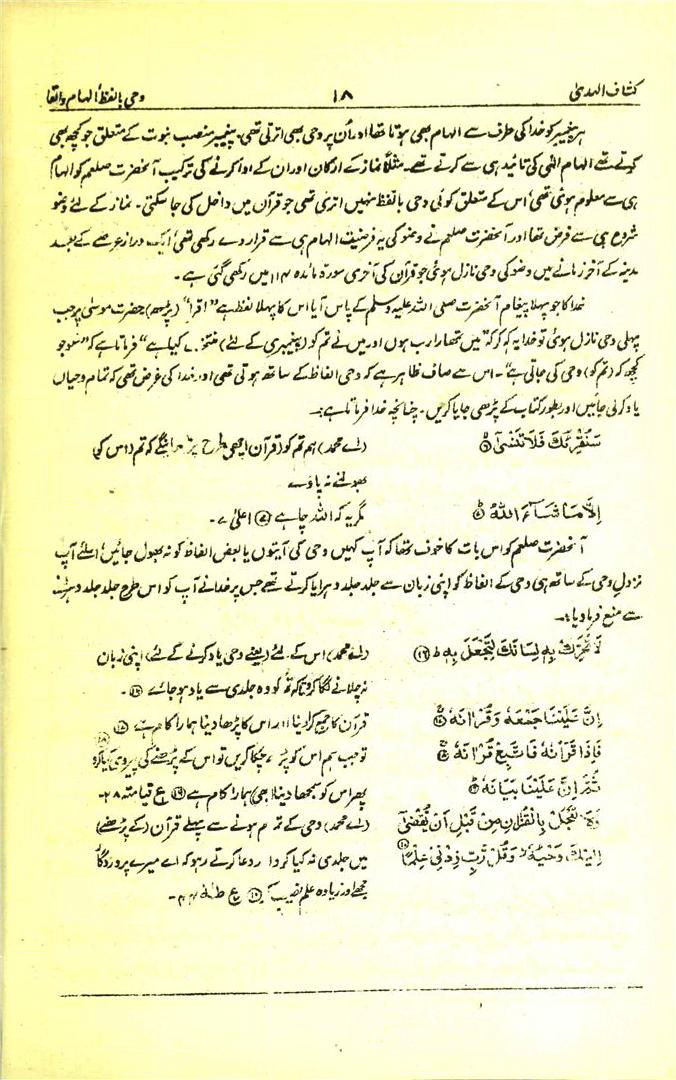 کشاف الہدیٰ ۱۸ وحی بالفظ الہام و القا
ہر پیغمبر کو خدا کی طرف سے الہام بھی ہوتا تھا اور اُن پر وحی بھی اترتی تھی۔ پیغمبر منصب نبوت کے متعلق جو کچھ بھی
کرتے تھے الہام الٰہی کی تائید ہی سے کرتے تھے۔ مثلاً نماز کے ارکان اور ان کے ادا کرنے کی ترکیب آنحضرت صلعم کو الہام
ہی سے معلوم ہوئی تھی، اس کے متعلق کوئی وحی بالفظ نہیں اتری تھی جو قرآن میں داخل کی جا سکتی۔ نماز کے لئے وضو
شروع ہی سے فرض تھا اور آنحضرت صلعم نے وضو کی یہ فرضیت الہام ہی سے قرار دے رکھی تھی، ایک دراز عرصے کے بعد
مدینہ کے آخر زمانے میں وضو کی وحی نازل ہوئی جو قرآن کی آخری سورۃ مائدہ ۱۱۴ میں رکھی گئی ہے۔
خدا کا جو پہلا پیغام آنحضرت صلی اللہ علیہ وسلم کے پاس آیا اس کا پہلا لفظ ہے "اقرا" (پڑھ) حضرت موسیٰ پر جب
پہلی وحی نازل ہوئی تو خدا یہ کہہ کر کہ "میں تمھارا رب ہوں اور میں نے تم کو (پیغمبری کے لئے) منتخب کیا ہے" فرماتا ہے کہ "سنو جو
کچھ کہ (تم کو) وحی کی جاتی ہے"۔ اس سے صاف ظاہر ہے کہ وحی الفاظ کے ساتھ ہوتی تھی اور خدا کی غرض تھی کہ تمام وحیاں
یاد کرلی جائیں اور بطور کتاب کے پڑھی جایا کریں۔ چنانچہ خدا فرماتا ہے:۔
سَنُقْرِئُكَ فَلَا تَنْسٰىٓ ۙ (اے محمد) ہم تم کو (قرآن) اچھی طرح پڑھائینگے کہ تم (اس کو)
بھولنے نہ پاؤ گے
اِلَّا مَا شَآءَ اللّٰهُ ؕ مگر یہ کہ اللہ چاہے ⑦ اعلیٰ ۷۔
آنحضرت صلعم کو اس بات کا خوف تھا کہ آپ کہیں وحی کی آیتوں یا بعض الفاظ کو نہ بھول جائیں، اسلئے آپ
نزول وحی کے ساتھ ہی وحی کے الفاظ کو اپنی زبان سے جلد جلد دہرایا کرتے تھے جس پر خدا نے آپ کو اس طرح جلد جلد دہرانے
سے منع فرما دیا:۔
لَا تُحَرِّكْ بِهٖ لِسَانَكَ لِتَعْجَلَ بِهٖ ؕ ⑯ (اے محمد) اس کے لئے (یعنے وحی یاد کرنے کے لئے) اپنی زبان
نہ چلانے لگا کرو تاکہ تم کو وہ جلدی سے یاد ہو جائے ⑯
اِنَّ عَلَيْنَا جَمْعَهٗ وَقُرْاٰنَهٗ ۚ قرآن کا جمع کرا دینا اور اس کا پڑھا دینا ہمارا کام ہے ⑰
فَاِذَا قَرَاْنٰهُ فَاتَّبِعْ قُرْاٰنَهٗ ۚ تو جب ہم اس کو پڑھ چکا کریں تو اس کے پڑھنے کی پیروی کیا کرو ⑱
ثُمَّ اِنَّ عَلَيْنَا بَيَانَهٗ ؕ پھر اس کو سمجھا دینا (بھی) ہمارا کام ہے ⑲ ع قیامتہ ۲۸۔
وَلَا تَعْجَلْ بِالْقُرْاٰنِ مِنْ قَبْلِ اَنْ يُّقْضٰۤى (اے محمد) وحی کے تمام ہونے سے پہلے قرآن (کے پڑھنے)
اِلَيْكَ وَحْيُهٗ ۫ وَقُلْ رَّبِّ زِدْنِيْ عِلْمًا میں جلدی نہ کیا کرو اور دعا کرتے رہو کہ اے میرے پروردگار
مجھے اور زیادہ علم نصیب کر ع طٰہٰ